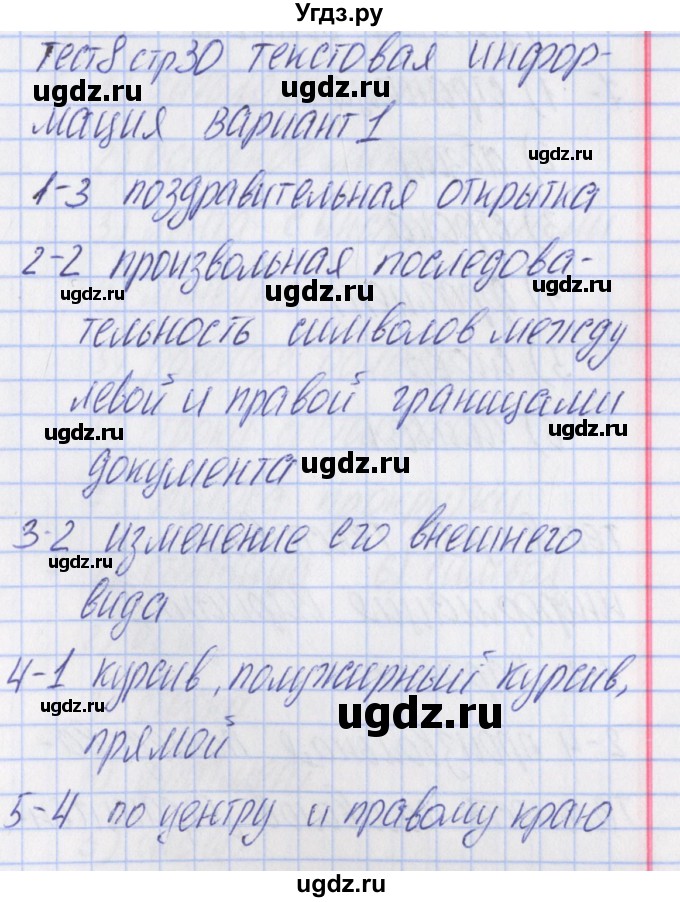 Угдз.ру
тест 8 стр 30 текстовая инфор-
ugdz.ru ugdz.ru ugdz.ru
мация вариант 1
ugdz.ru
1-3 поздравительная открытка
2-2 произвольная последова-
ugdz.ru ugdz.ru ugdz.ru
тельность символов между
левой и правой границами
ugdz.ru ugdz.ru
документа ugdz.ru
3-2 изменение его внешнего
ugdz.ru
вида
4-1 курсив, полужирный курсив,
ugdz.ru ugdz.ru
прямой
5-4 по центру и правому краю
ugdz.ru